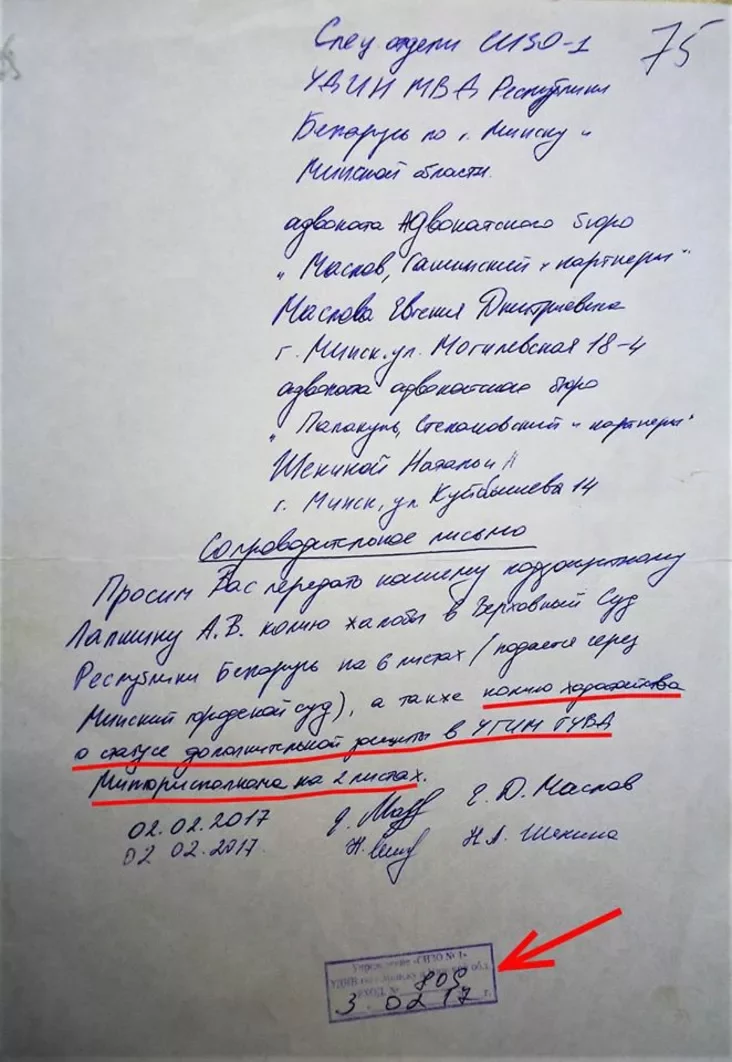 75
Спец отдел СИЗО-1
УДИН МВД Республики
Беларусь по г. Минску и
Минской области.
адвоката Адвокатского бюро
"Маслов, Гашинский и партнеры"
Маслова Евгения Дмитриевича
г. Минск, ул. Могилевская 18-4
адвоката адвокатского бюро
Степановский и партнеры"
Шекиной Натальи А
г. Минск, ул Куйбышева 14
Сопроводительное письмо
Просим Вас передать нашему подзащитному
Лапшину А.В. копию жалобы в Верховный Суд
Республики Беларусь на 6 листах (подается через
Минский городской суд), а также копию ходатайства
о статусе дополнительной защиты в УГИМ ГУВД
Мингорисполкома на 2 листах.
02.02.2017 Е. Д. Маслов
02 02.2017. Н.А. Шекина
Учреждение «СИЗО №1»
УДИН по г. Минску и Минской обл.
ВХОД. № 805
3 0217 г.